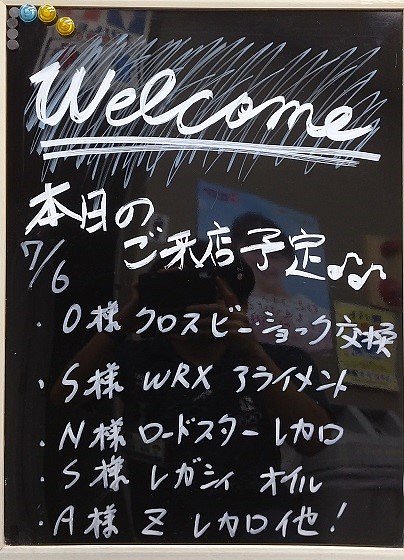 Welcome
本日の
ご来店予定♪♪
7/6
・O様 クロスビー ショック交換
・S様 WRX アライメント
・N様 ロードスター レカロ
・S様 レガシィ オイル
・A様 Z レカロ他!